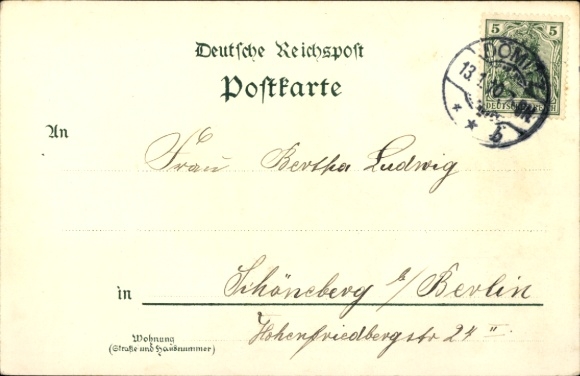 5 5
DÖMITZ
13.1.10.
DEUTSCHES REICH
* * b
Deutsche Reichspost
Postkarte
An
Frau Bertha Ludwig
in Schöneberg b/Berlin
Wohnung
(Straße und Hausnummer)
Hohenfriedbergstr 24 II